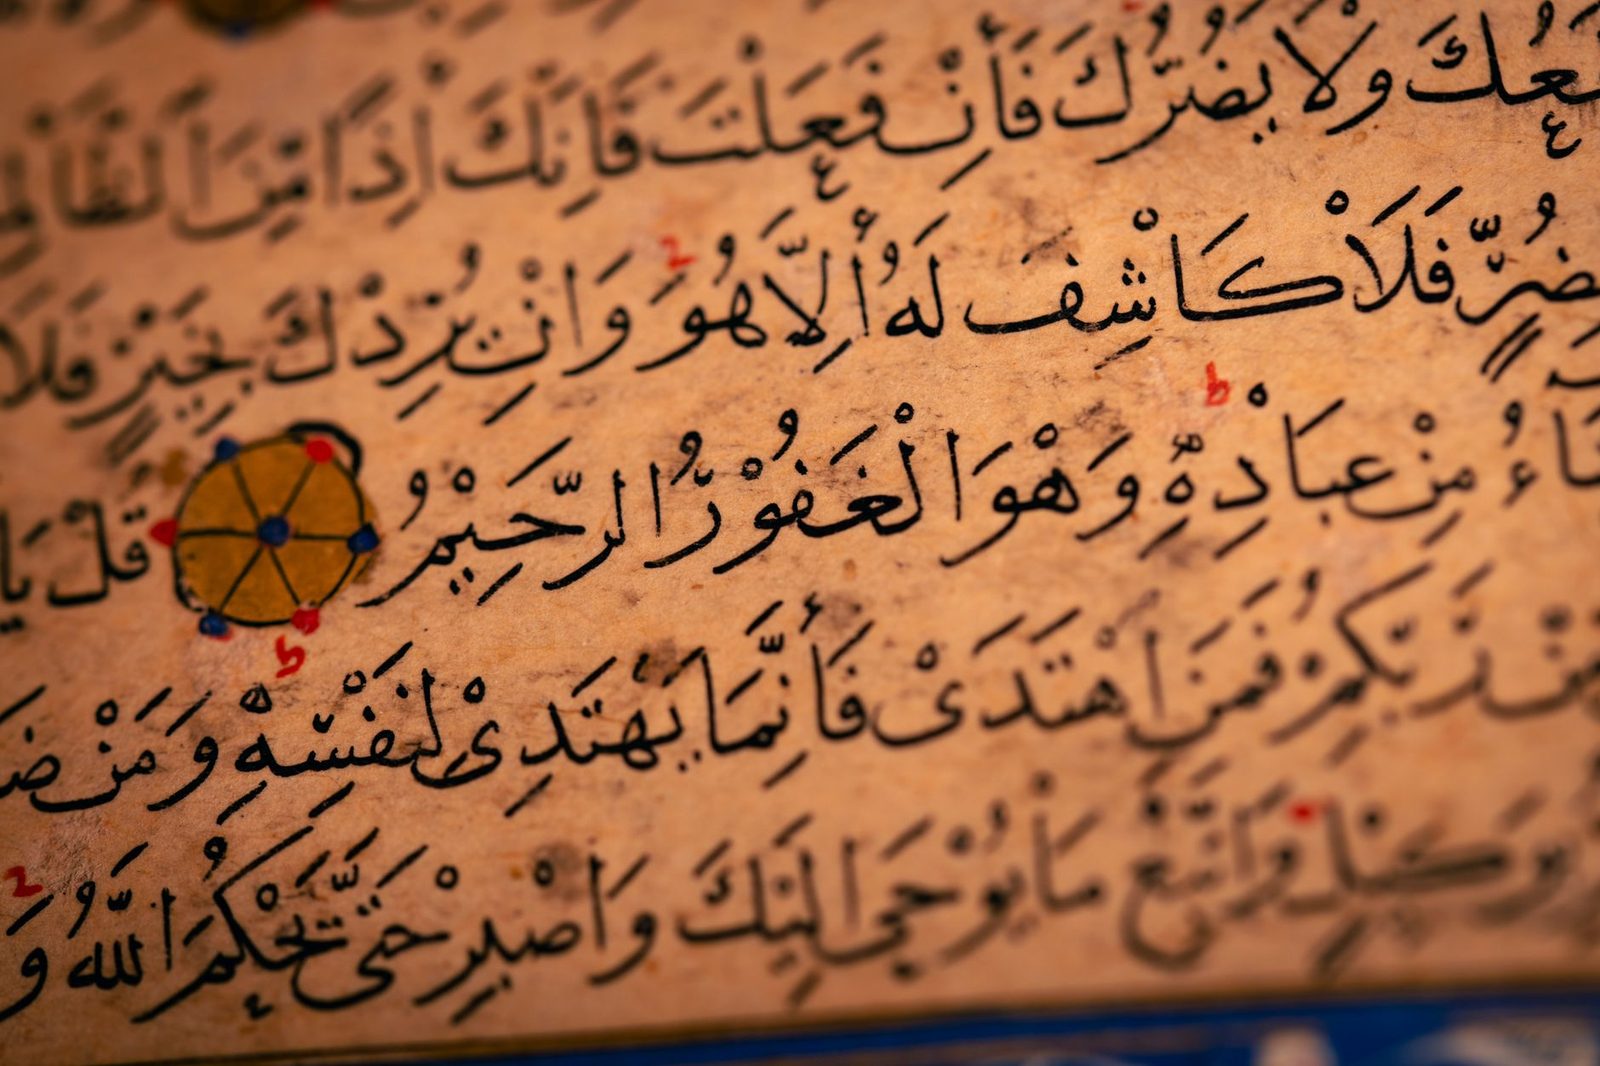 فَعُكَ وَلَا يَضُرُّكَ فَاِنْ فَعَلْتَ فَاِنَّكَ اِذًا مِنَ الظَّالِمِ
ضُرٍّ فَلَا كَاشِفَ لَهُ اِلَّا هُوَ ط وَاِنْ يُرِدْكَ بِخَيْرٍ فَلَا
ـَاءُ مِنْ عِبَادِهٖ ط وَهُوَ الْغَفُوْرُ الرَّحِيْمُ قُلْ يَا
مِنْ رَبِّكُمْ فَمَنِ اهْتَدَىْ فَاِنَّمَا يَهْتَدِىْ لِنَفْسِهٖ ط وَمَنْ ضَ
بِوَكِيْلٍ وَاتَّبِعْ مَا يُوْحَى اِلَيْكَ وَاصْبِرْ حَتّٰى يَحْكُمَ اللّٰهُ وَ